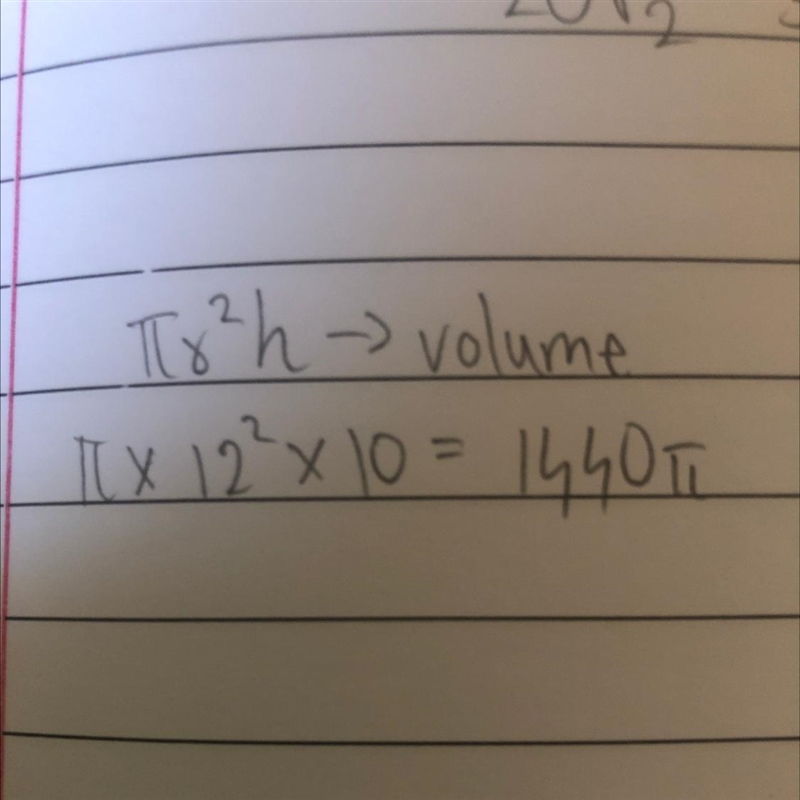 πr²h → volume
π × 12² × 10 = 1440π